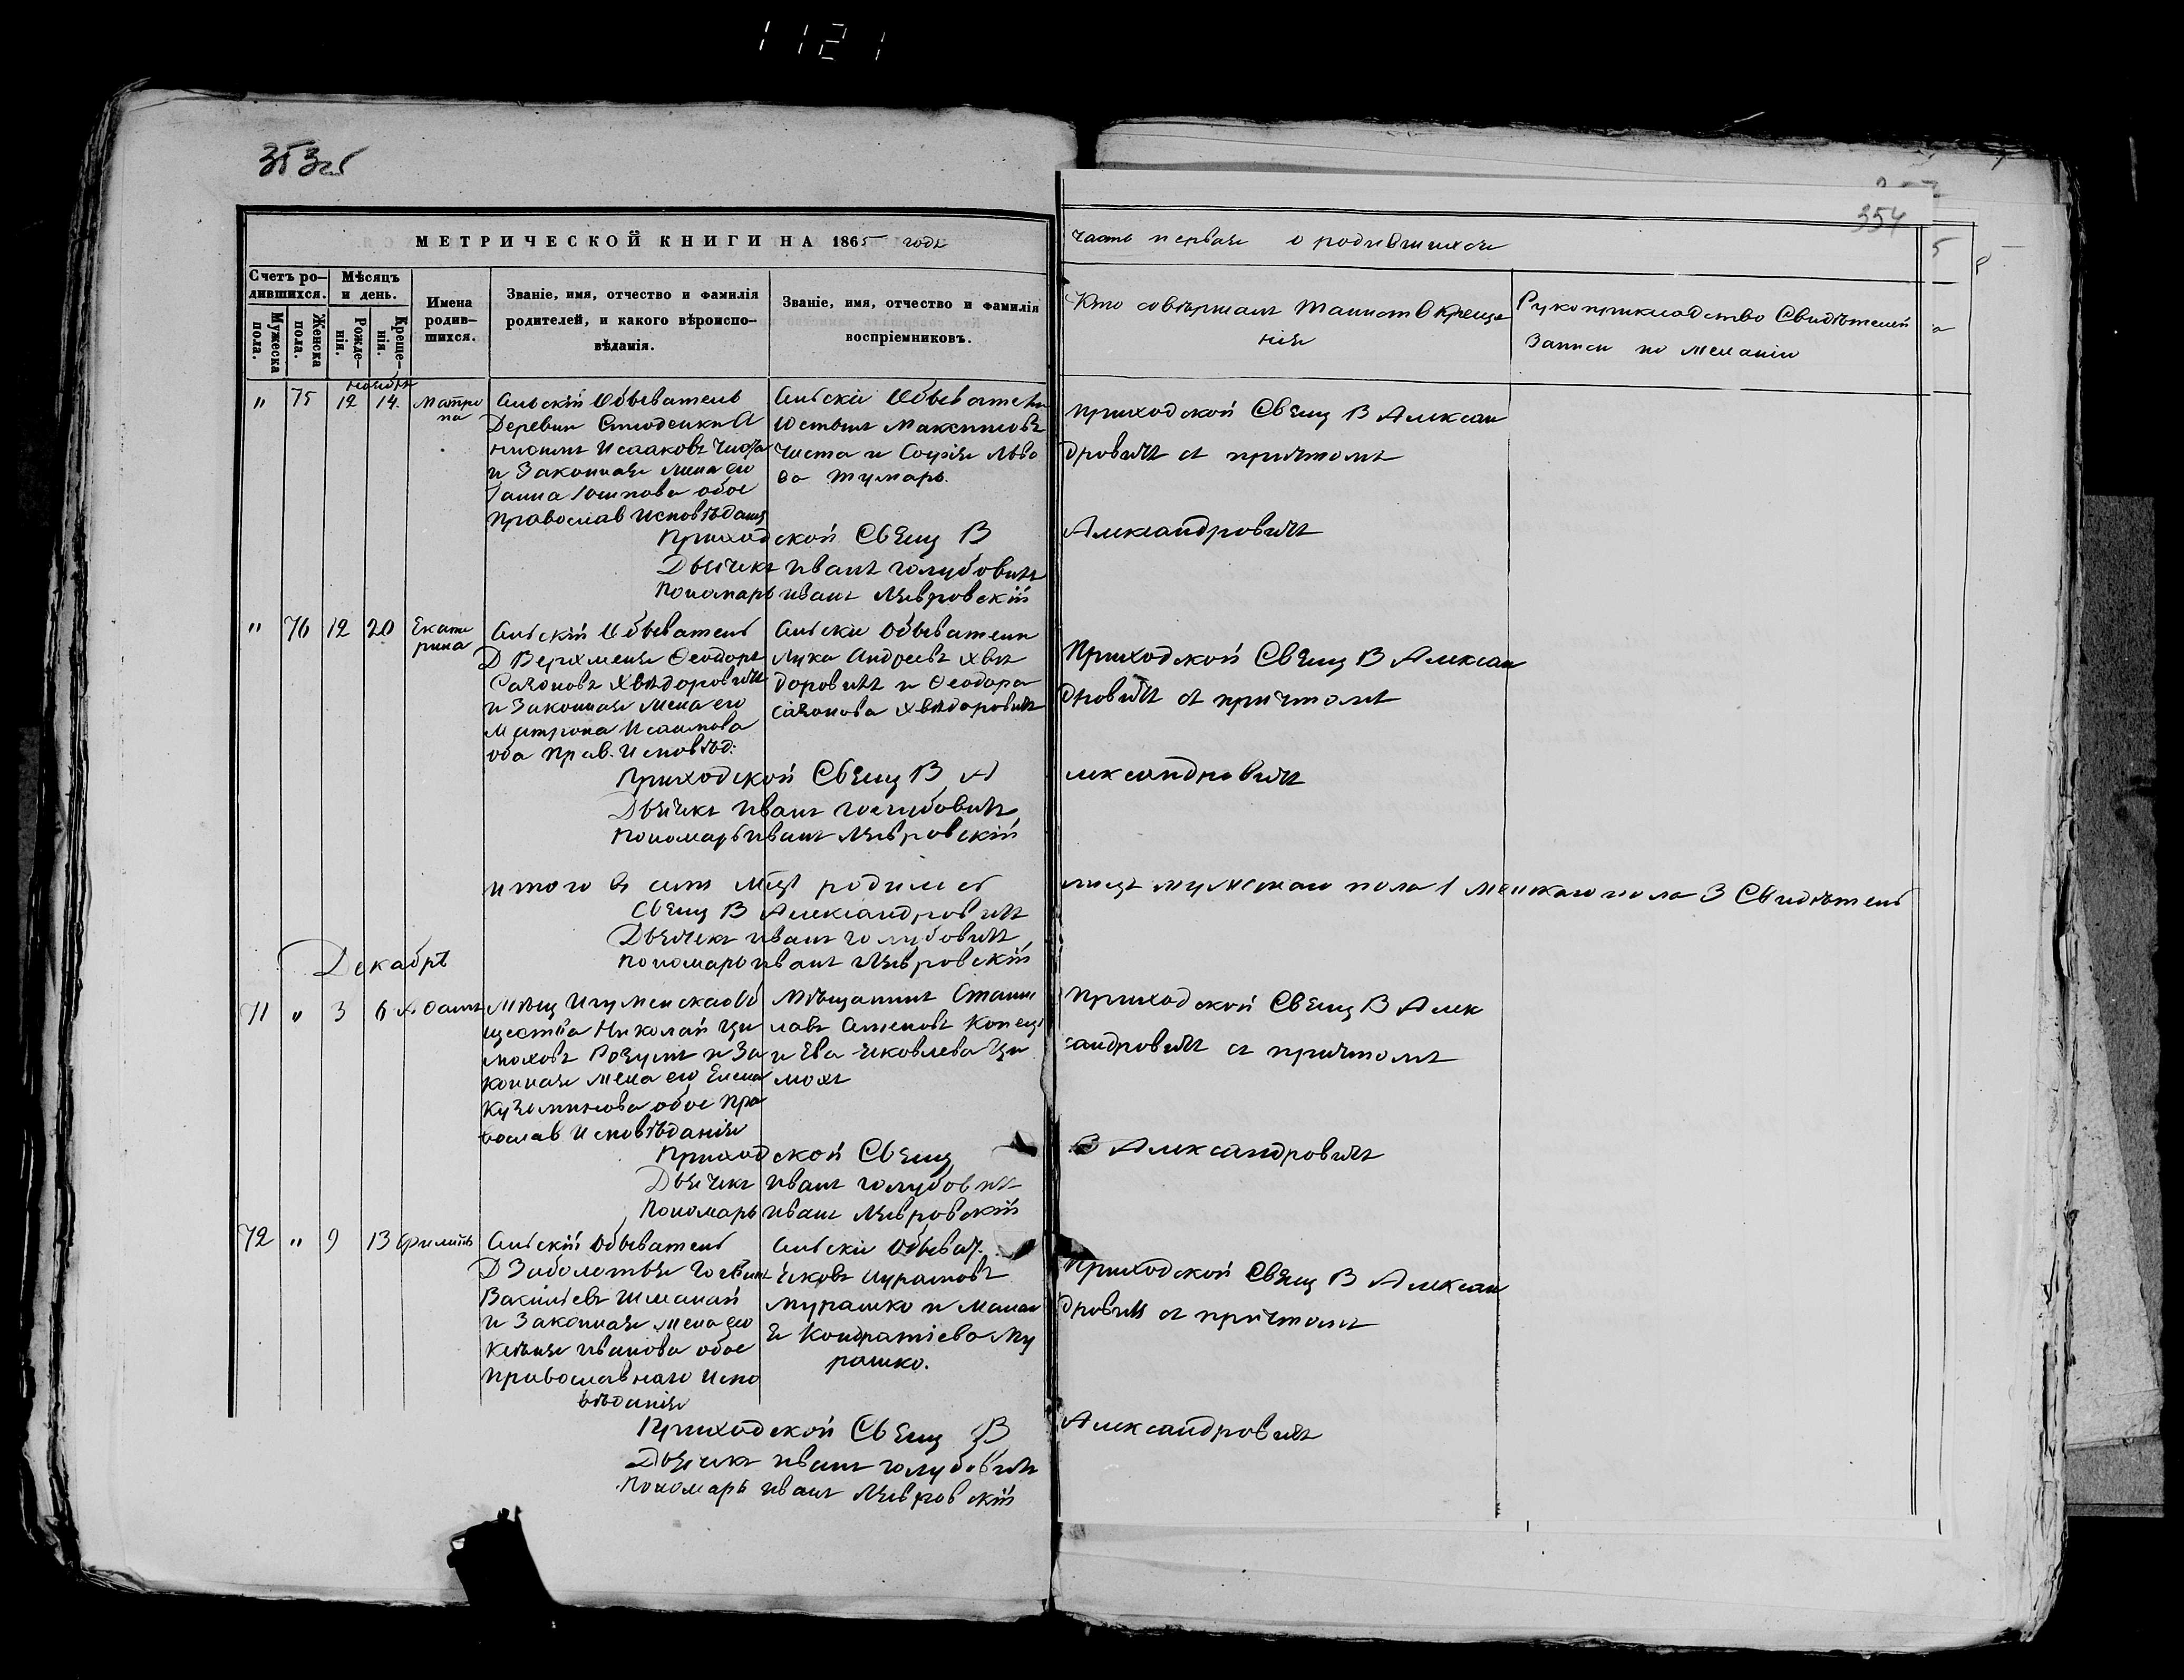 1121
353об
354
МЕТРИЧЕСКОЙ КНИГИ НА 1865 годъ
часть первая о родившихся
5
Счетъ ро-
дившихся.
Мѣсяцъ
и день.
Мужеска
пола.
Женска
пола.
Рожде-
нія.
Креще-
нія.
Имена
родив-
шихся.
Званіе, имя, отчество и фамилія
родителей, и какого вѣроиспо-
вѣданія.
Званіе, имя, отчество и фамилія
воспріемниковъ.
Кто совѣршалъ таинств Креще
нія
Рукоприкладство Свидѣтелей
Записи по желанію
ноября
" 75 12 14. Матро
на
Сельскій Обыватель
Деревни Студенки А
Исааковъ Чиста
и Законная жена его
Ганна обое
Православ Исповѣданія
Сельскіи Обыватели
Юстынъ Максимовъ
Чиста и Софія Льво
ва
Приходской Свящ В Алексан
дровичъ съ причтомъ
Приходской Свящ В
Александровичъ
Дьячекъ иванъ голубовичъ
Пономарь иванъ Лявровскій
" 76 12 20 Екате
рина
Сельскій Обыватель
Д Верхменя Ѳеодоръ
Сазоновъ Хвѣдоровичъ
и Законная жена его
Матрона
оба Прав. Исповѣд:
Сельскіи Обыватели
Лука Андреевъ Хвѣ
доровичъ и Ѳеодора
Сазонова Хвѣдоровичъ
Приходской Свящ В Алексан
дровичъ съ причтомъ
Приходской Свящ В А
лександровичъ
Дьячекъ иванъ голубовичъ
Пономарь иванъ Лявровскій
итого въ семъ Мцѣ родилось
лицъ мужскаго пола 1 женкаго пола 3 Свидѣтель
Свящ В Александровичъ
Дьячекъ иванъ голубовичъ
Пономарь иванъ Лявровскій
Декабрь
71 " 3 6 Адамъ
Мѣщ Игуменскаго Об
щества Николай Ци
моховъ Розумъ и За
конная жена его Елена
Кузьминова обое Пра
вослав Исповѣданія
Мѣщанинъ Стани
лавъ Копец
и Ева Яковлева Ци
мохъ
Приходской Свящ В Алек
сандровичъ съ причтомъ
Приходской Свящ
В Александровичъ
Дьячекъ иванъ голубовичъ
Пономарь иванъ Лявровскій
72 " 9 13 Филипъ
Сельскій Обыватель
Д Заболотья
Васильевъ Шеманай
и Законная жена его
Ксенія иванова обое
православнаго Испо
вѣданія
Сельскіи Обыват.
Яковъ
Мурашко и Малан
я Кондратіева Му
рашко.
Приходской Свящ В Алексан
дровичъ съ причтомъ
Приходской Свящ В
Александровичъ
Дьячекъ иванъ голубовичъ
Пономарь иванъ Лявровскій